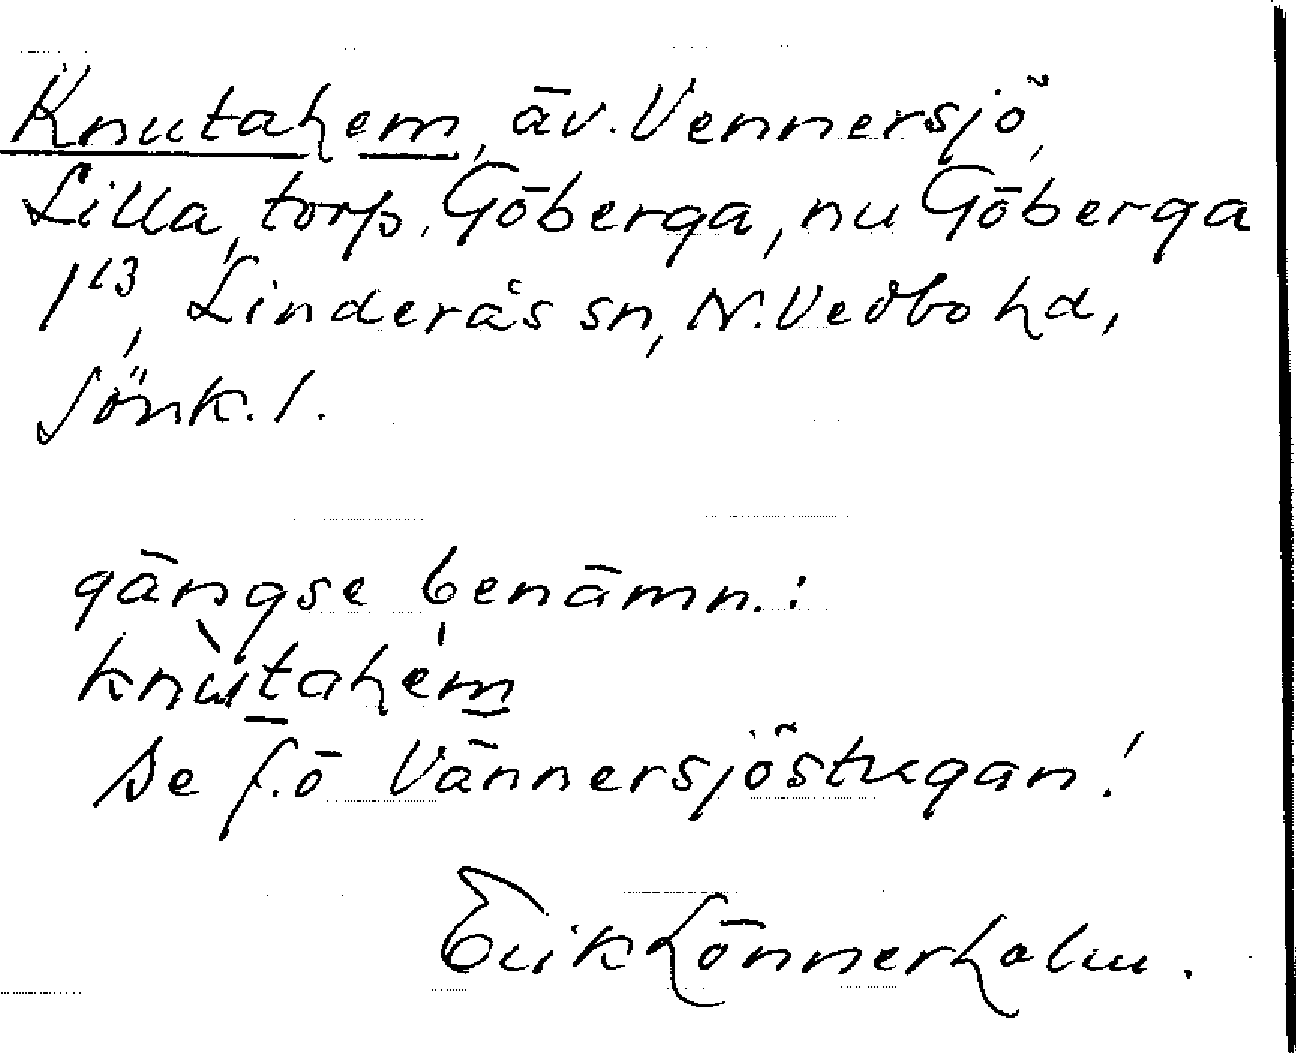 Knutahem, äv. Vennersjö,
Lilla, torp. Göberga, nu Göberga
1¹³, Linderås sn, N. Vedbo hd,
Jönk. l.
gängse benämn.:
knùtahém
se f.ö Vännersjöstugan!
Erik Lönnerholm.